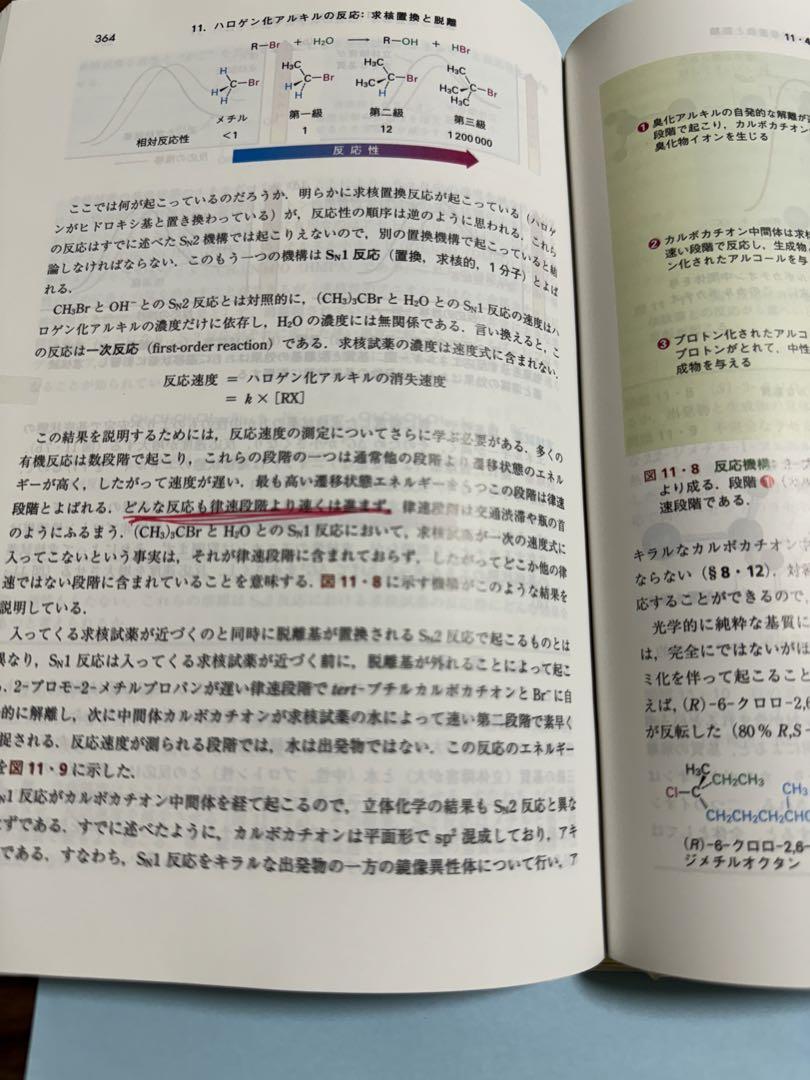 364
11．ハロゲン化アルキルの反応：求核置換と脱離
R—Br + H₂O ⟶ R—OH + HBr
H H H C—Br
H₃C H H C—Br
H₃C H₃C H C—Br
H₃C H₃C H₃C C—Br
メチル 第一級 第二級 第三級
相対反応性 <1 1 12 1 200 000
反応性
ここでは何が起こっているのだろうか．明らかに求核置換反応が起こっている（ハロゲ
ンがヒドロキシ基と置き換わっている）が，反応性の順序は逆のように思われる．これら
の反応はすでに述べた SN2 機構では起こりえないので，別の置換機構で起こっていると結
論しなければならない．このもう一つの機構は SN1 反応（置換，求核的，1 分子）とよば
れる．
CH₃Br と OH⁻ との SN2 反応とは対照的に，(CH₃)₃CBr と H₂O との SN1 反応の速度はハ
ロゲン化アルキルの濃度だけに依存し，H₂O の濃度には無関係である．言い換えると，こ
の反応は一次反応（first-order reaction）である．求核試薬の濃度は速度式に含まれない．
反応速度 ＝ ハロゲン化アルキルの消失速度
＝ k × [RX]
この結果を説明するためには，反応速度の測定についてさらに学ぶ必要がある．多くの
有機反応は数段階で起こり，これらの段階の一つは通常他の段階より遷移状態のエネル
ギーが高く，したがって速度が遅い．最も高い遷移状態エネルギーをもつこの段階は律速
段階とよばれる．どんな反応も律速段階より速くは進まず，律速段階は交通渋滞や瓶の首
のようにふるまう．(CH₃)₃CBr と H₂O との SN1 反応において，求核試薬が一次の速度式に
入ってこないという事実は，それが律速段階に含まれておらず，したがってどこか他の律
速ではない段階に含まれていることを意味する．図 11・8 に示す機構がこのような結果を
説明している．
入ってくる求核試薬が近づくのと同時に脱離基が置換される SN2 反応で起こるものとは
異なり，SN1 反応は入ってくる求核試薬が近づく前に，脱離基が外れることによって起こ
．2-ブロモ-2-メチルプロパンが遅い律速段階で tert-ブチルカルボカチオンと Br⁻ に自
的に解離し，次に中間体カルボカチオンが求核試薬の水によって速い第二段階で素早く
捉される．反応速度が測られる段階では，水は出発物ではない．この反応のエネルギー
を図 11・9 に示した．
N1 反応がカルボカチオン中間体を経て起こるので，立体化学の結果も SN2 反応と異な
はずである．すでに述べたように，カルボカチオンは平面形で sp² 混成しており，アキ
である．すなわち，SN1 反応をキラルな出発物の一方の鏡像異性体について行い，ア
11・4
❶ 臭化アルキルの自発的な解離が
段階で起こり，カルボカチオン
臭化物イオンを生じる
❷ カルボカチオン中間体は求
速い段階で反応し，生成物
ン化されたアルコールを与
❸ プロトン化されたアルコ
プロトンがとれて，中性
成物を与える
図 11・8 反応機構：
より成る．段階 ❶
速段階である．
キラルなカルボカチオン
ならない（§8・12）．対
応することができるので，
光学的に純粋な基質に
は，完全にではないがほ
ミ化を伴って起こること
えば，(R)-6-クロロ-2,6
が反転した（80% R,S
H₃C
CH₂CH₃
Cl—C
CH₃
CH₂CH₂CH₂CHC
(R)-6-クロロ-2,6-
ジメチルオクタン